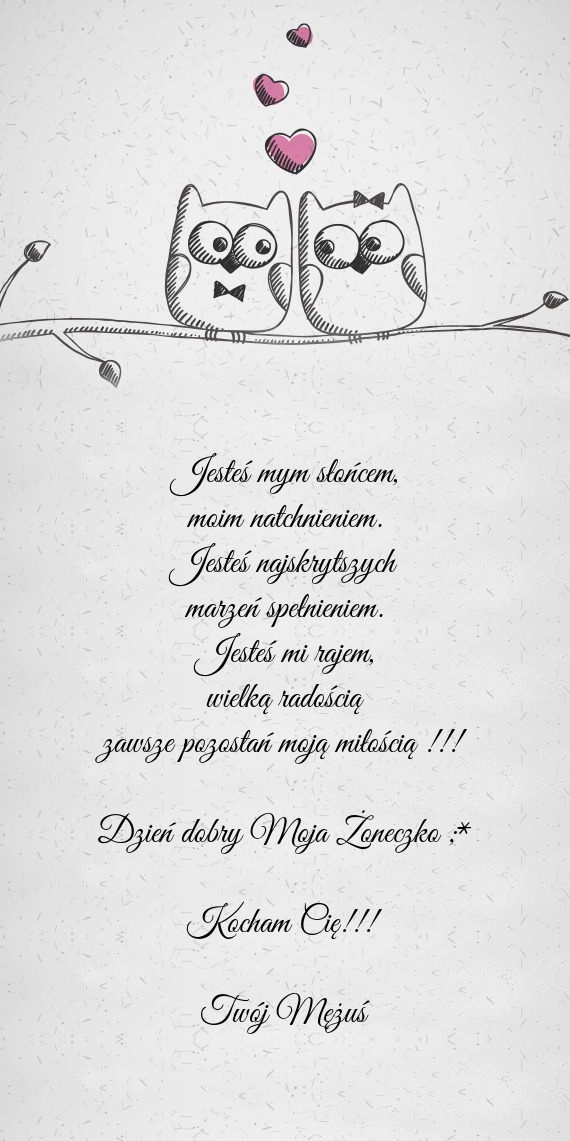 Jesteś mym słońcem,
moim natchnieniem.
Jesteś najskrytszych
marzeń spełnieniem.
Jesteś mi rajem,
wielką radością
zawsze pozostań moją miłością !!!
Dzień dobry Moja Żoneczko ;*
Kocham Cię!!!
Twój Mężuś